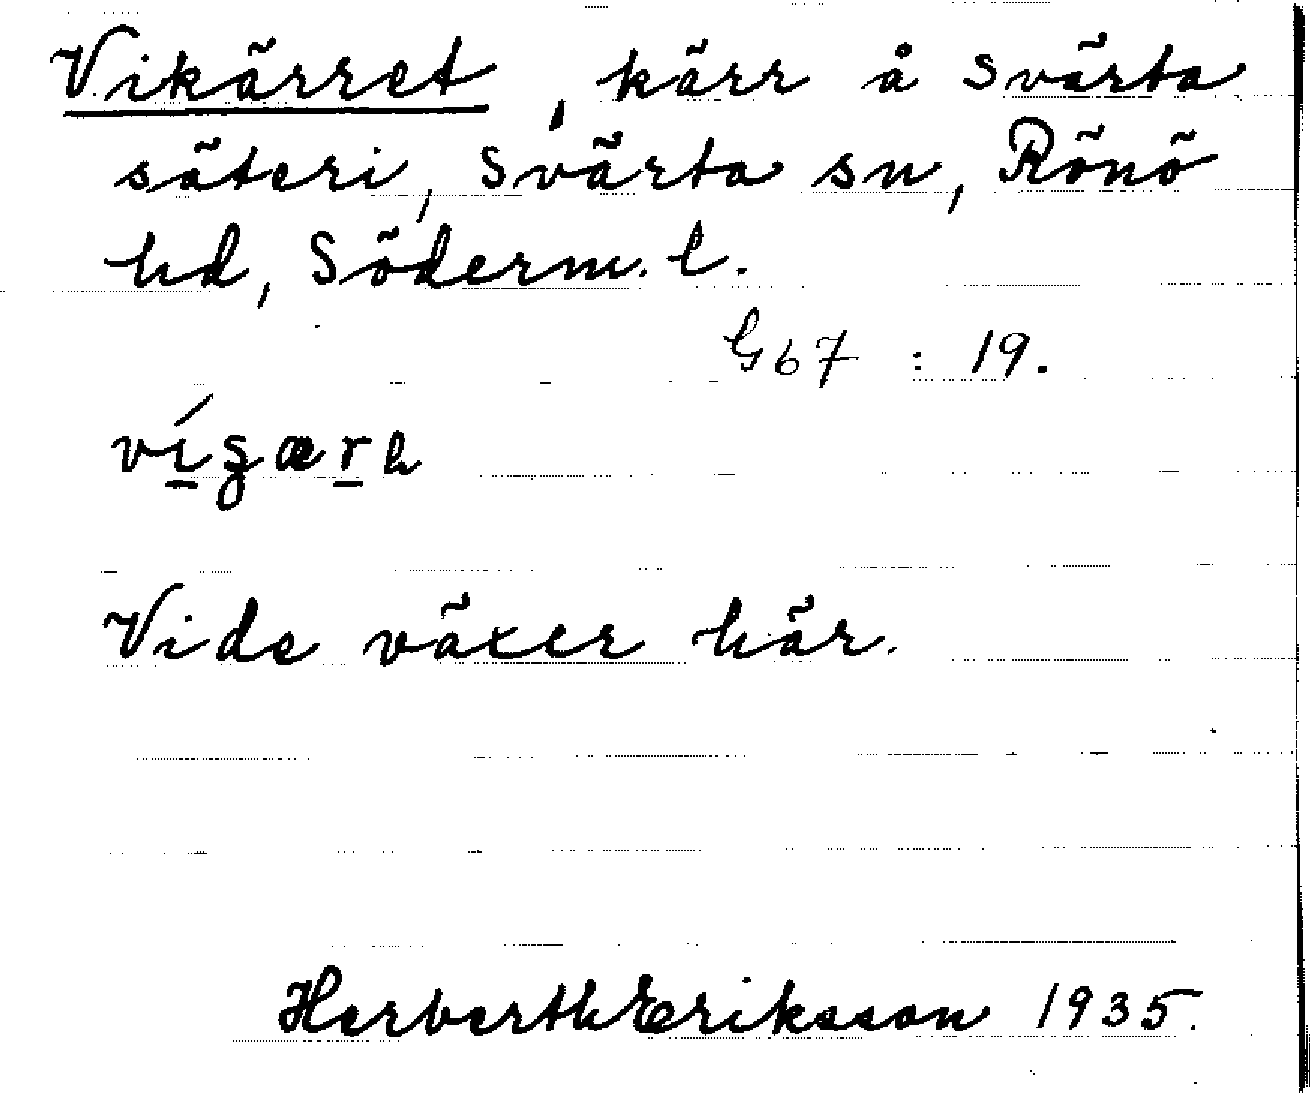 Vikärret, kärr å Svärta
säteri, Svärta sn, Rönö
hd, Söderm. l.
G67 : 19.
Vide växer här.
Herberth Eriksson 1935.